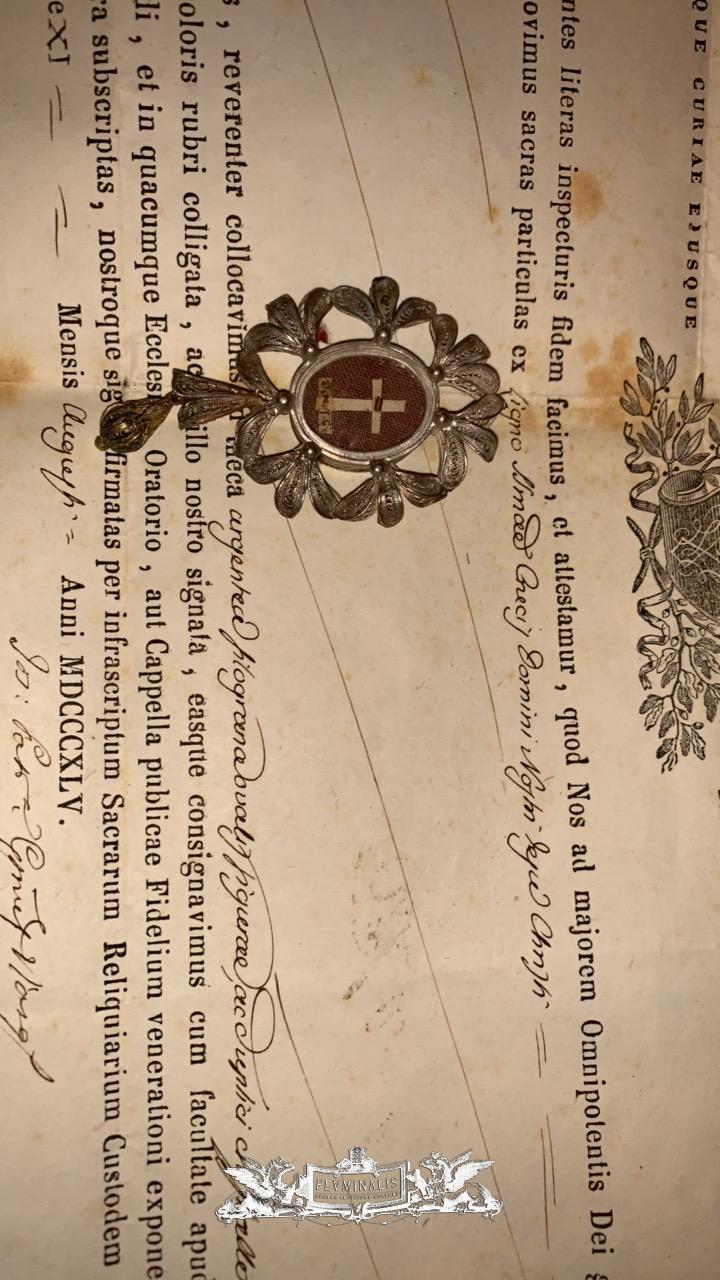 QUE CURIAE EJUSQUE
ntes literas inspecturis fidem facimus, et attestamur, quod Nos ad majorem Omnipotentis Dei g
ovimus sacras particulas ex Ligno Smae Crucis Domini Nostri Jesu Christi
s, reverenter collocavimus theca argentea filograna ovalis figurae, ac duplici
oloris rubri colligata, ac sigillo nostro signata, easque consignavimus cum facultate apud
di, et in quacumque Ecclesia Oratorio, aut Cappella publicae Fidelium venerationi expone
ra subscriptas, nostroque sig firmatas per infrascriptum Sacrarum Reliquiarium Custodem
e XI Mensis Augusti Anni MDCCCXLV.
FLVMINALIS